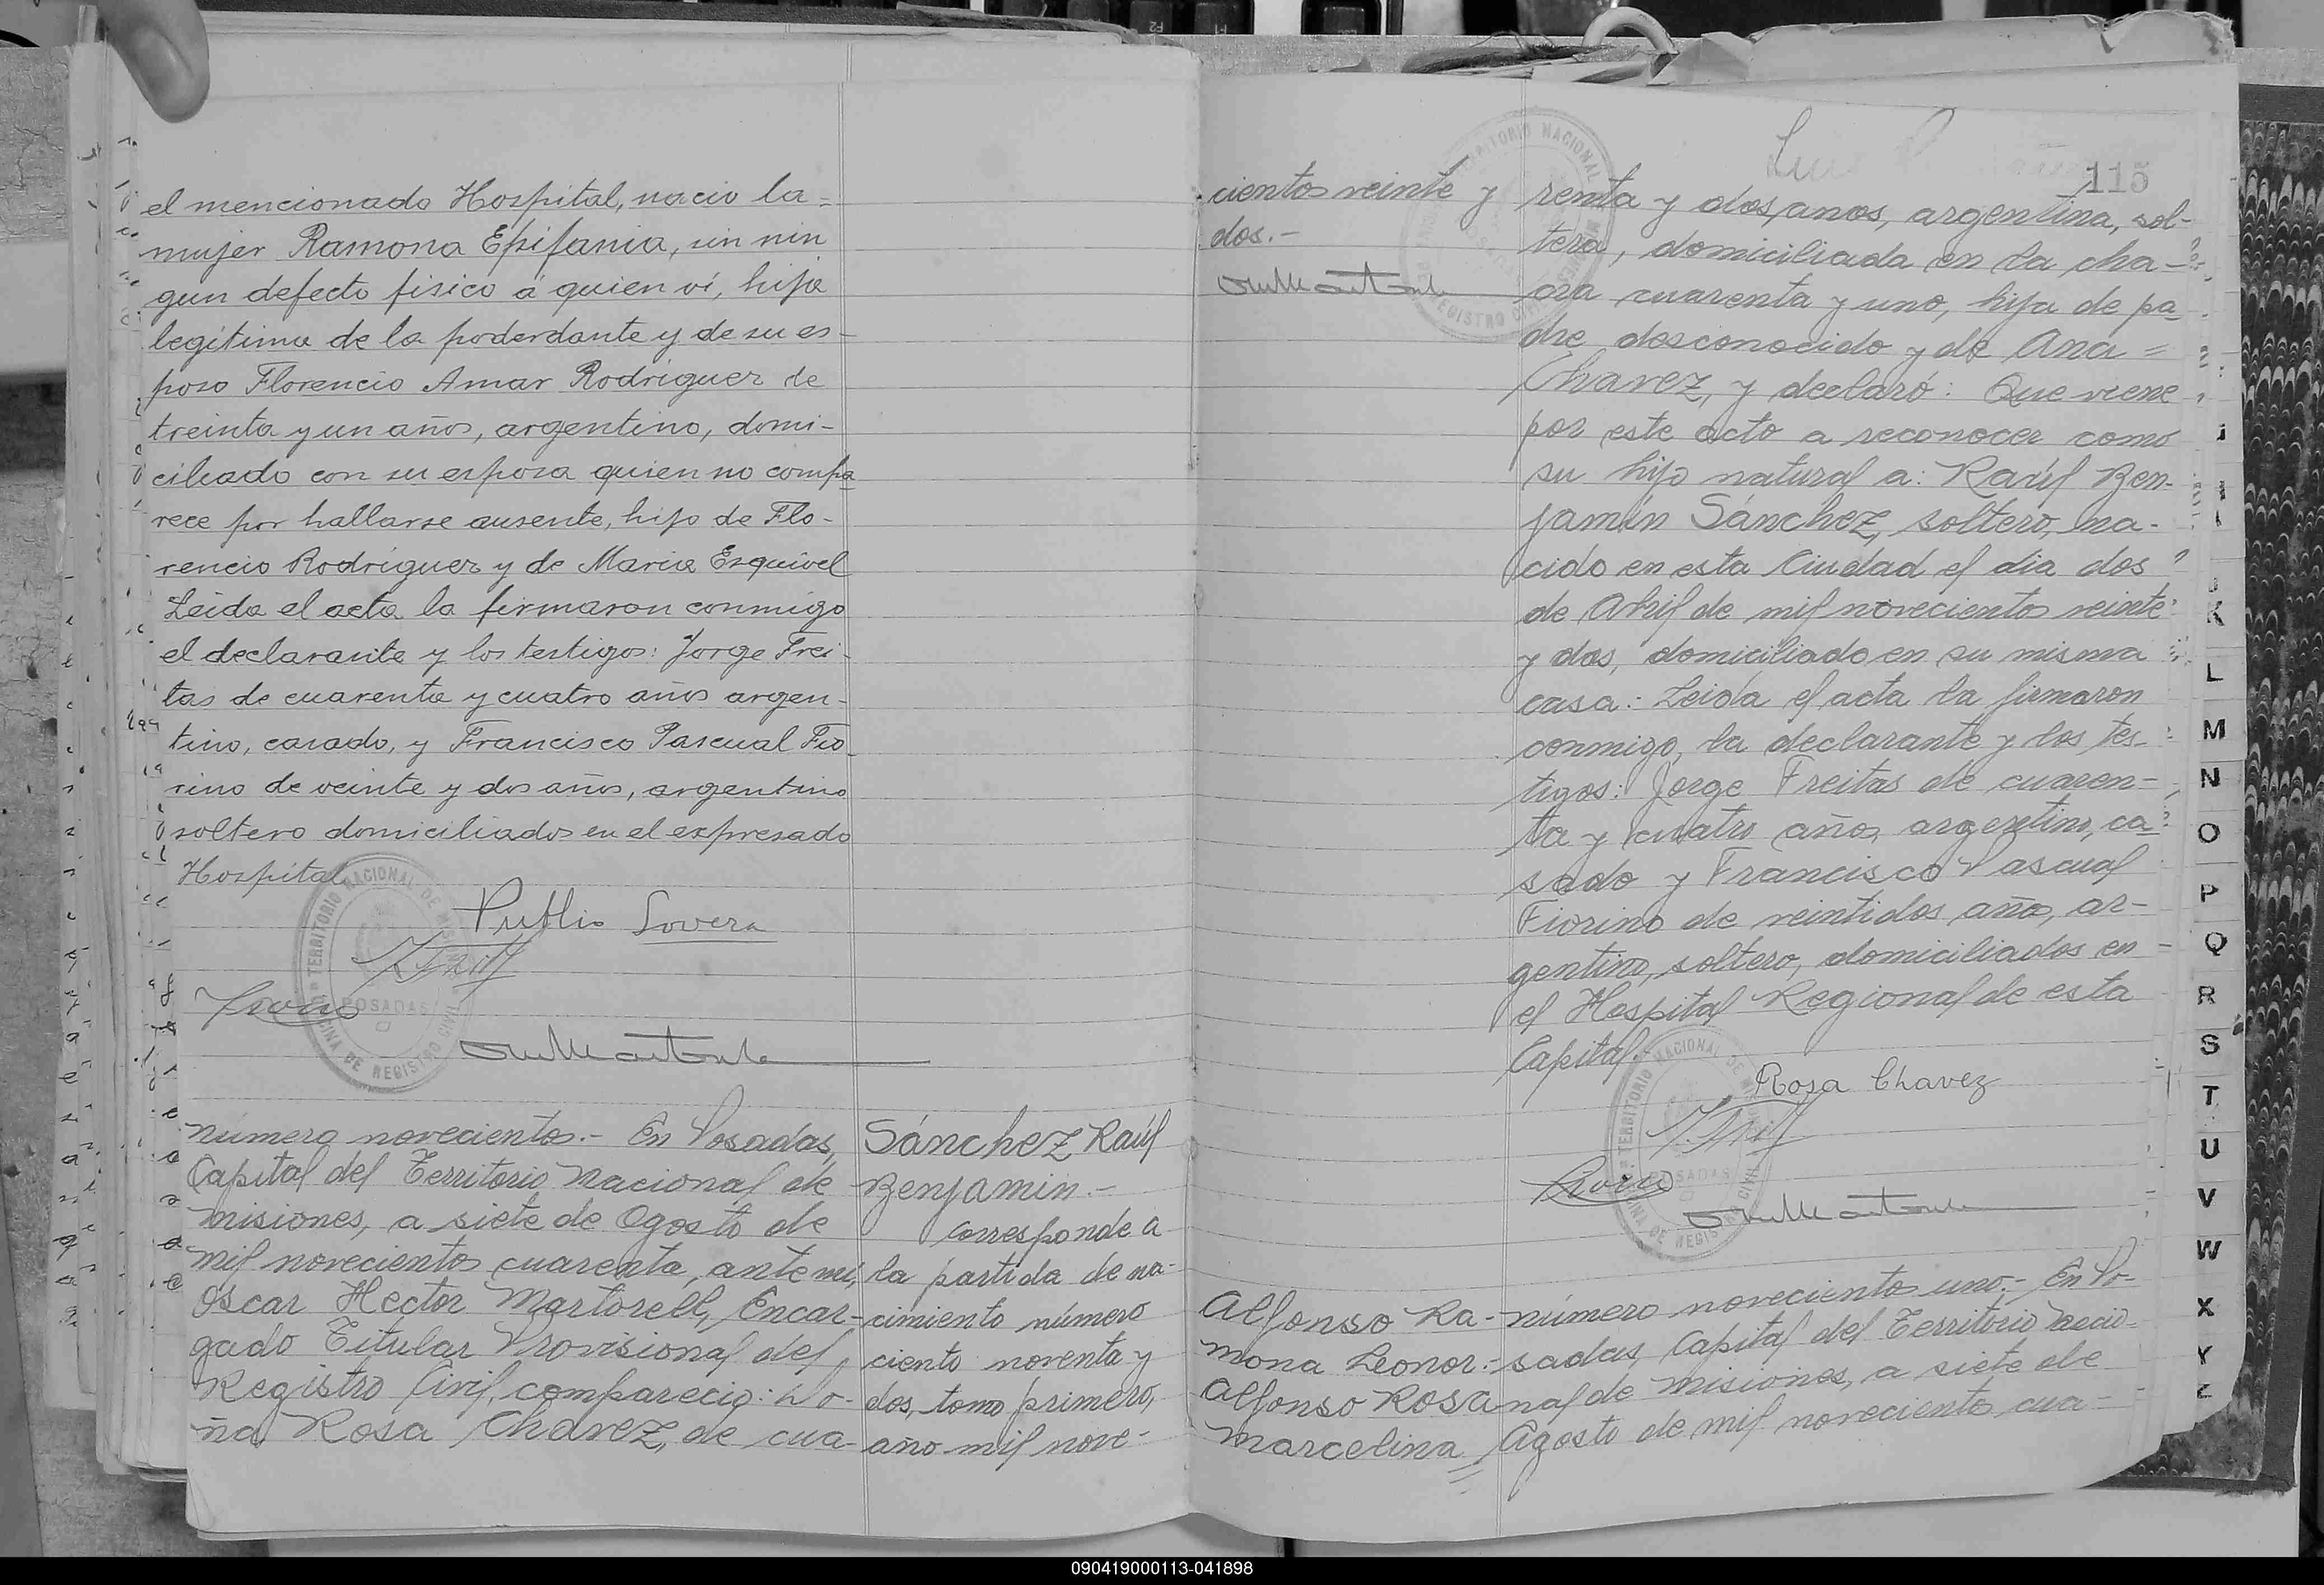 el mencionado Hospital, nacio la=
mujer Ramona Epifania, sin nin
gun defecto fisico á quien ví, hija
legítima de la poderdante y de su es-
poso Florencio Amar Rodriguez de
treinta y un años, argentino, domi-
ciliado con su esposa quien no compa
rece por hallarse ausente, hijo de Flo-
rencio Rodriguez y de Maria Esquivel
Leida el acta la firmaron conmigo
el declarante y los testigos: Jorge Frei-
tas de cuarenta y cuatro años argen-
tino, casado, y Francisco Pascual Fio-
rino de veinte y dos años, argentino
soltero domiciliados en el expresado
Hospital
Publio Lovera
TERRITORIO NACIONAL DE
POSADAS
OFICINA DE REGISTRO CIVIL
número novecientos.- En Posadas,
Capital del Territorio Nacional de
Misiones, a siete de Agosto de
mil novecientos cuarenta, ante mi,
Oscar Hector Martorell, Encar-
gado Titular Provisional del
Registro Civil, comparecio: Do-
ña Rosa Chavez, de cua-
Sánchez Raúl
Benjamin.-
Corresponde a
la partida de na-
cimiento número
ciento noventa y
dos, tomo primero,
año mil nove-
cientos veinte y
dos.-
115
renta y dos anos, argentina, sol-
tera, domiciliada en la cha-
cra cuarenta y uno, hija de pa
dre desconocido y de Ana=
Chavez, y declaró: Que viene
por este acto a reconocer como
su hijo natural a: Raúl Ben-
jamin Sánchez, soltero, na-
cido en esta Ciudad el dia dos
de Abril de mil novecientos veinte
y dos, domiciliado en su misma
casa: Leida el acta la firmaron
conmigo, la declarante y los tes-
tigos: Jorge Freitas de cuaren-
ta y cuatro años, argentino, ca-
sado y Francisco Pascual
Fiorino de veintidos años, ar-
gentino, soltero, domiciliados en
el Hospital Regional de esta
Capital.-
Rosa Chavez
TERRITORIO NACIONAL DE
POSADAS
OFICINA DE REGISTRO CIVIL
Alfonso Ra-
mona Leonor.-
Alfonso Rosa
Marcelina
número novecientos uno.- En Po-
sadas, Capital del Territorio Nacio-
nal de Misiones, a siete de
Agosto de mil novecientos cua-
K
L
M
N
O
P
Q
R
S
T
U
V
W
X
Y
Z
090419000113-041898